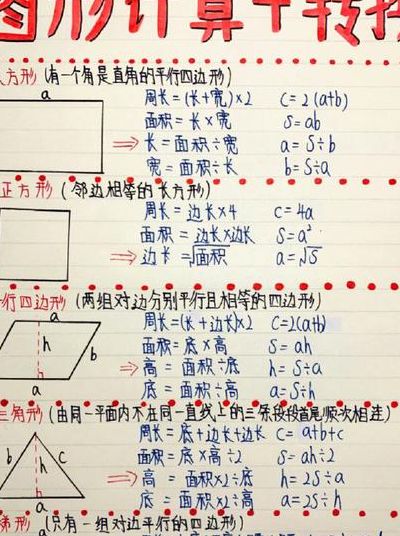 图形计算+转换
长方形 (有一个角是直角的平行四边形)
a
周长=(长+宽)×2 C=2(a+b)
面积=长×宽 S=ab
⇒ 长=面积÷宽 a=S÷b
宽=面积÷长 b=S÷a
正方形 (邻边相等的长方形)
周长=边长×4 C=4a
面积=边长×边长 S=a²
⇒ 边长=√面积 a=√S
行四边形 (两组对边分别平行且相等的四边形)
a
周长=(长+边长)×2 C=2(a+b)
h b
面积=底×高 S=ah
⇒ 高=面积÷底 h=S÷a
a
底=面积÷高 a=S÷h
三角形 (由同一平面内不在同一直线上的三条段段首尾顺次相连)
周长=底+边长+边长 C=a+b+c
b h c
面积=底×高÷2 S=ah÷2
⇒ 高=面积×2÷底 h=2S÷a
a
底=面积×2÷高 a=2S÷h
梯形 (只有一组对边平行的四边形)
a